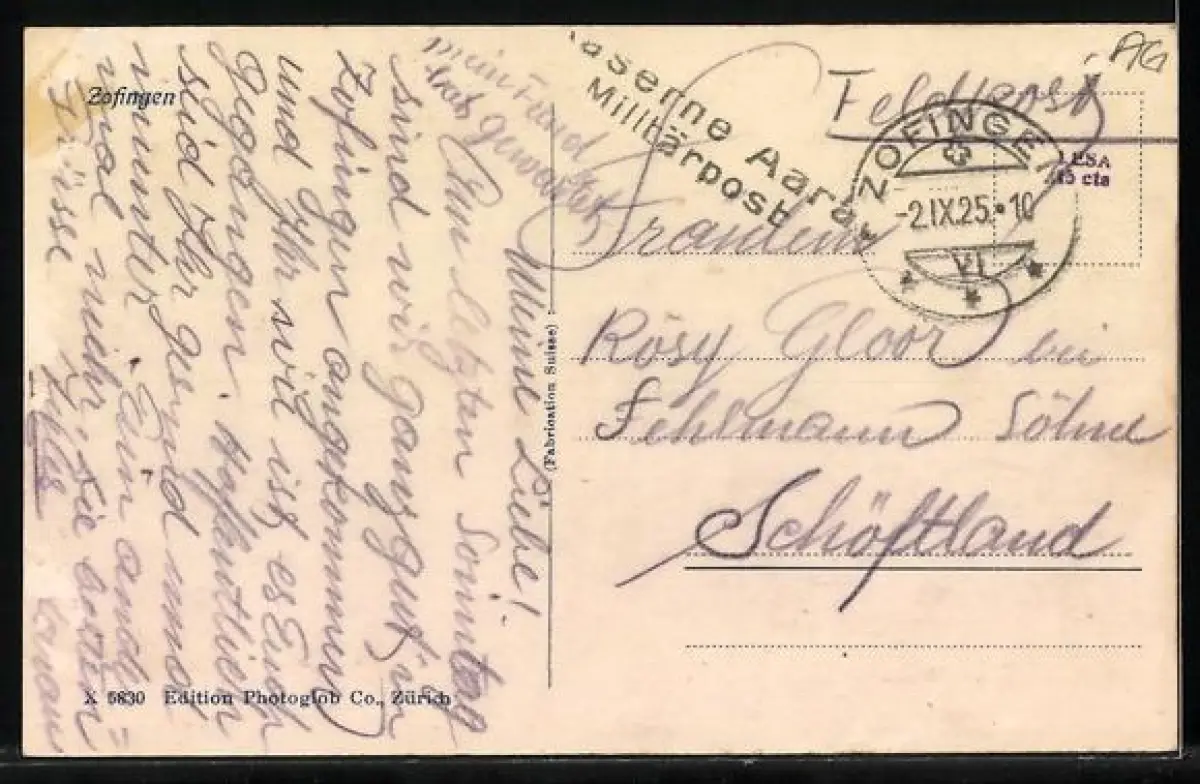 Zofingen
Meine Liebe!
Am letzten Sonntag
sind wir ganz gut in
Zofingen angekommen
und Ihr wie ist es Euch
gegangen. Hoffentlich
seid Ihr gesund und
munter. Ein ander=
mal mehr.
Grüsse
mein Freund
X 5830 Edition Photoglob Co., Zürich
(Fabrication Suisse)
AG
Feldpost
Kaserne Aarau
Militärpost
ZOFINGEN
-2.IX.25.-10
VI
LESA
15 cts
Fräulein
Rösy Gloor bei
Fehlmann Söhne
Schöftland